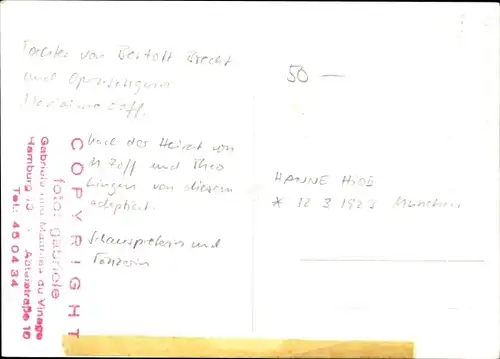 Tochter von Bertolt Brecht
und Opernsängerin
Marianne Zoff,
Nach der Heirat von
M Zoff und Theo
Lingen von diesem
adoptiert.
Schauspielerin und
Tänzerin
50 —
HANNE HiOB
* 12 3 1923 München
COPYRIGHT
foto: gabriele
Gabriele und Mathias du Vinage
Hamburg 13 Abteistraße 10
Tel.: 45 04 34